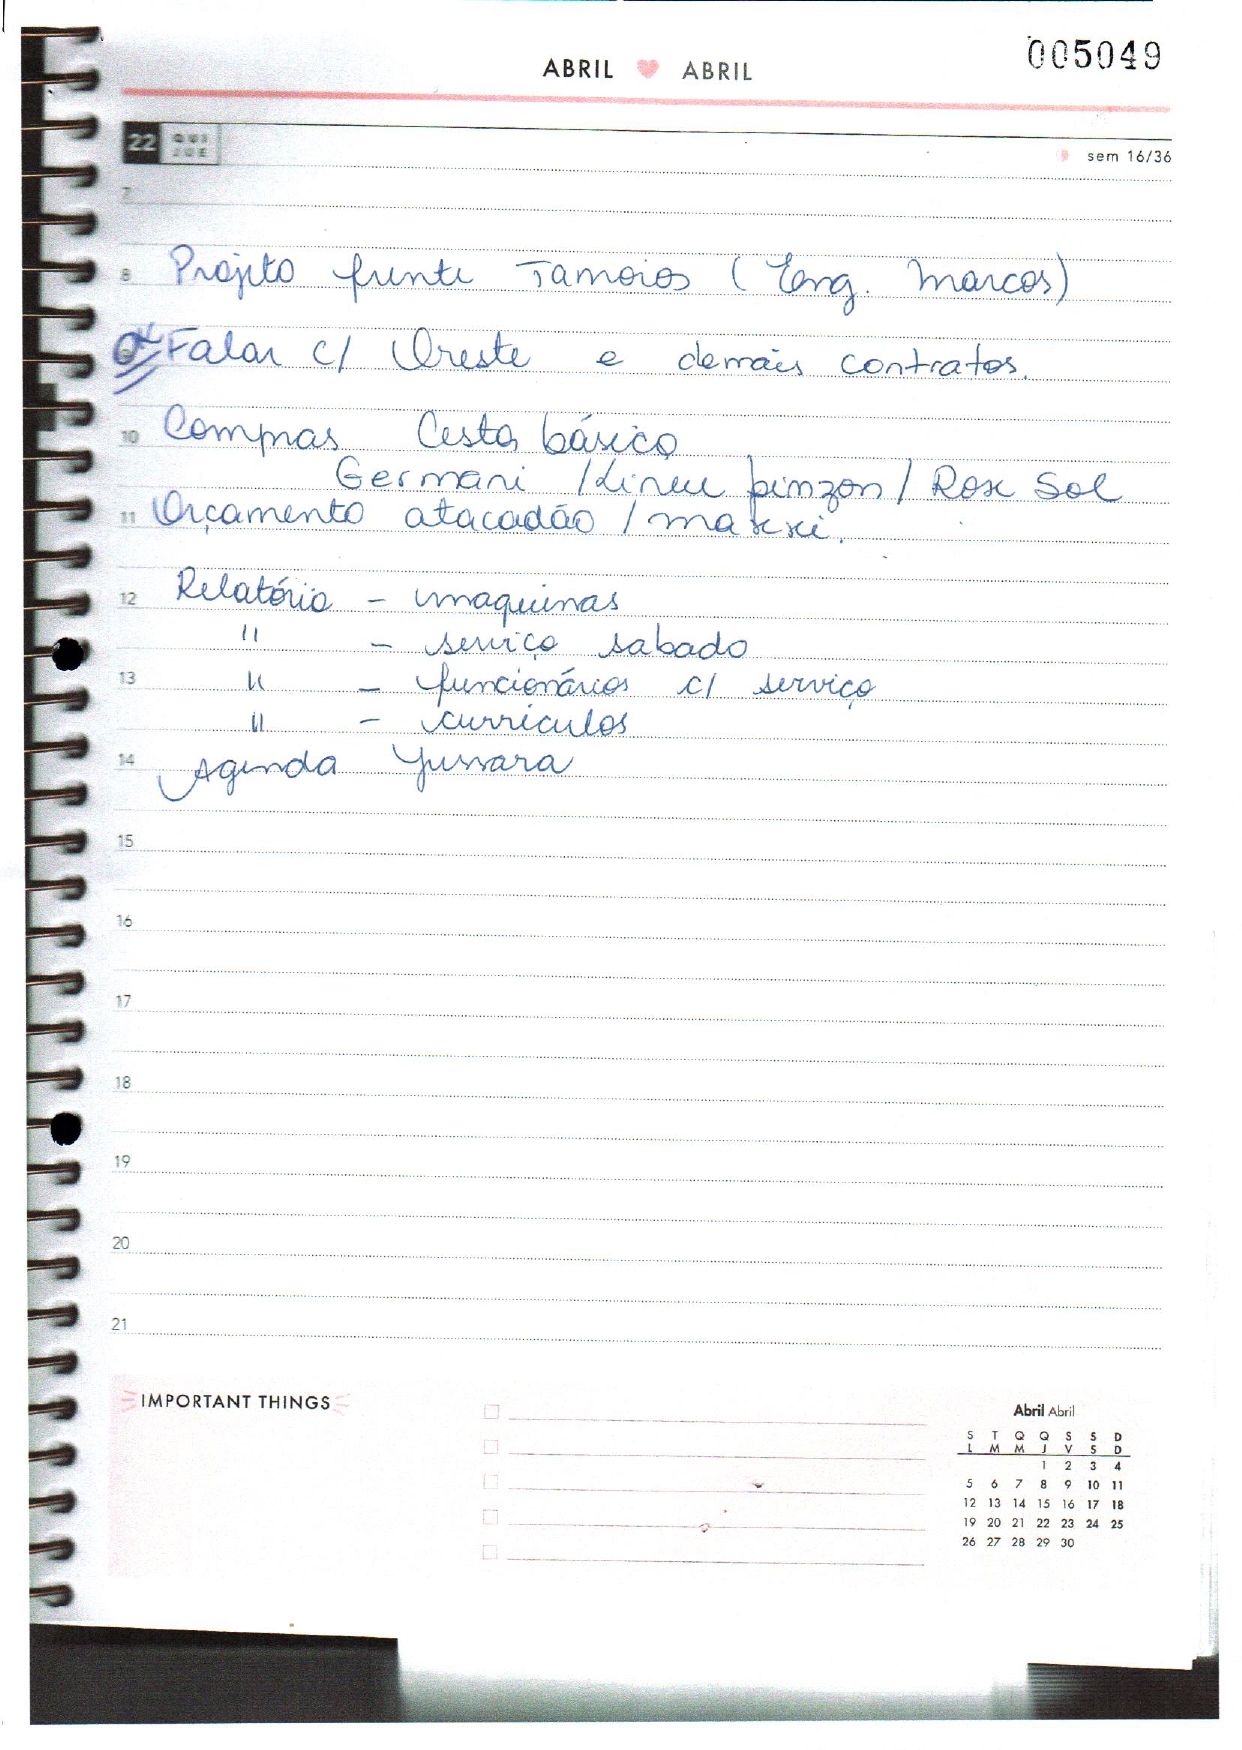 005049
ABRIL ABRIL
22 QUI
JUE
sem 16/36
7
8 Projeto frente Tamoios (Eng. Marcos)
OK Falar c/ Oreste e demais contratos.
10 Compras Cesta básica
Germani / Lineu pinzon / Rose Sol
11 Orçamento atacadão / makxi.
12 Relatório - maquinas
" - serviço sabado
13 " - funcionários c/ serviço
" - curriculos
14 Agenda Jussara
15
16
17
18
19
20
21
IMPORTANT THINGS
Abril Abril
S T Q Q S S D
L M M J V S D
1 2 3 4
5 6 7 8 9 10 11
12 13 14 15 16 17 18
19 20 21 22 23 24 25
26 27 28 29 30